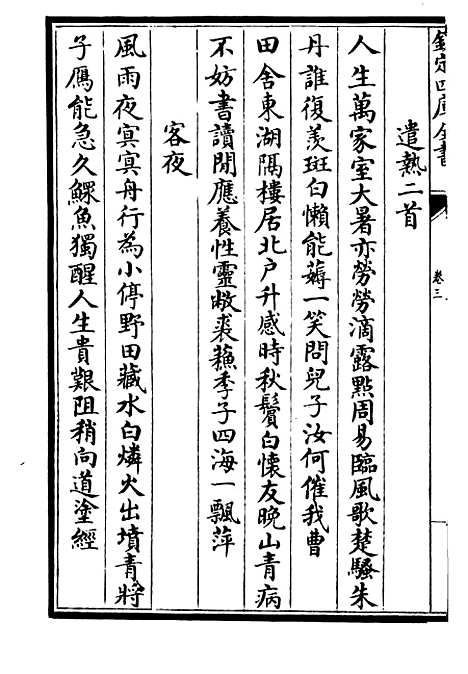 欽定四庫全書
卷三
遣熱二首
人生萬家室大暑亦勞勞滴露點周易臨風歌楚騷朱
丹誰復羨斑白懶能薅一笑問兒子汝何催我曹
田舍東湖隅樓居北户升感時秋鬢白懷友晚山青病
不妨書讀閒應養性靈敝裘蘓季子四海一飄萍
客夜
風雨夜冥冥舟行為小停野田藏水白燐火出墳青將
子鴈能急久鰥魚獨醒人生貴艱阻稍向道塗經